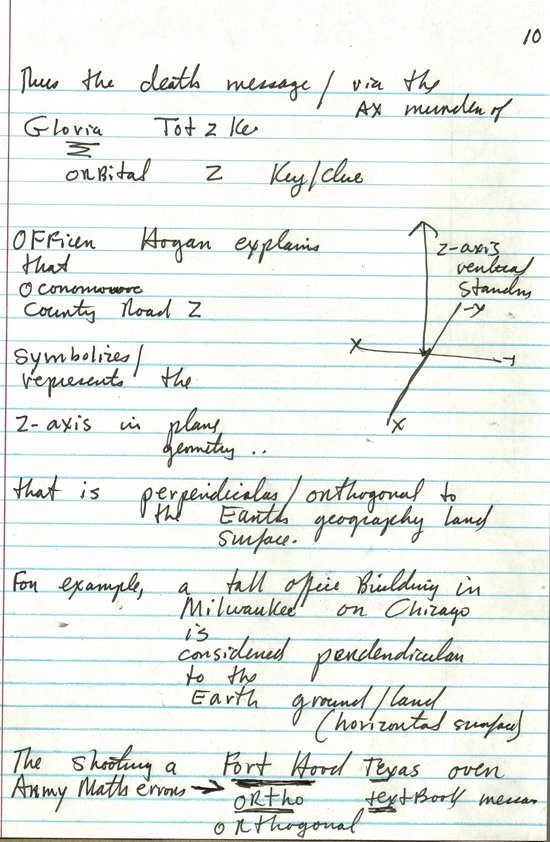 10
Thus the death message / via the
Ax murder of
Gloria Totzke
orBital Z Key/clue
OFFicer Hogan explains
that
Oconomowoc
County Road Z
Z-axis
vertical
standing
-y
X
-y
X
symbolizes/
represents the
Z-axis in plane
geometry ..
that is perpendicular/orthogonal to
the Earths geography land
surface.
For example, a tall office Building in
Milwaukee or Chicago
is
considered pendendicular
to the
Earth ground/land
(horizontal surface)
The shooting a Fort Hood Texas over
Army Math errors → ortho textBook
orthogonal